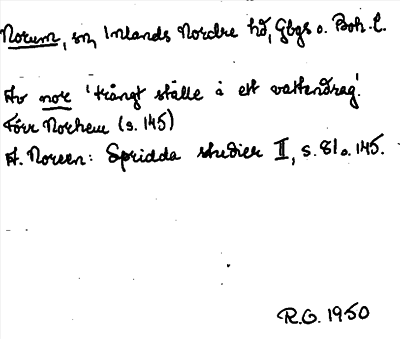 Norum, sn, Inlands Nordre hd, Gbgs o. Boh. l.
Av nor 'trångt ställe i ett vattendrag'.
Förr Norhem (s. 145)
A. Noreen: Spridda studier II, s. 81 o. 145.
R.G. 1950